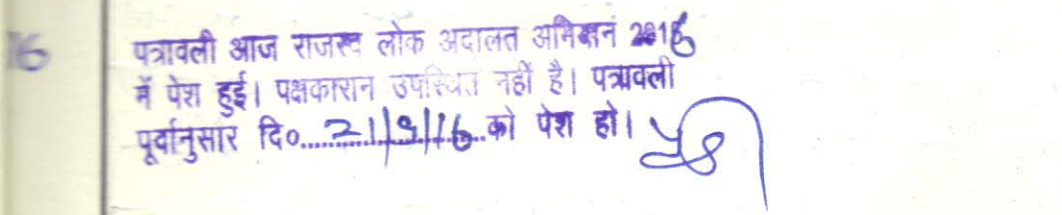 16
पत्रावली आज राजस्व लोक अदालत अभियान 2016
में पेश हुई। पक्षकारान उपस्थित नहीं है। पत्रावली
पूर्वानुसार दि०....21/9/16....को पेश हो।